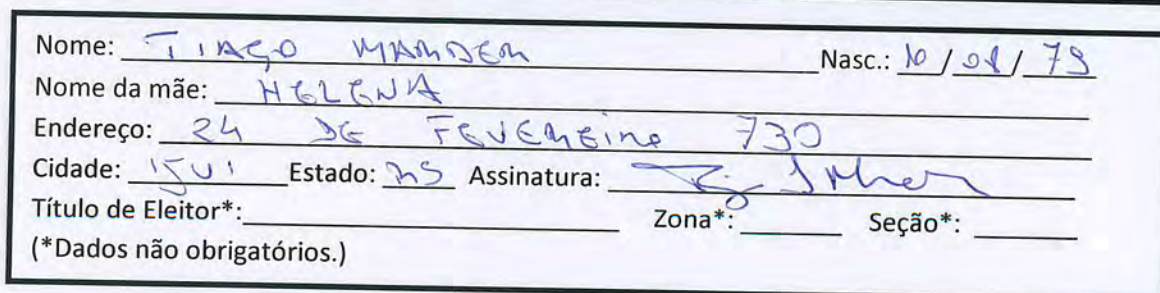 Nome: TIAGO MARDER Nasc.: 10/08/79
Nome da mãe: HELENA
Endereço: 24 DE FEVEREIRO 730
Cidade: IJUI Estado: RS Assinatura:
Título de Eleitor*: Zona*: Seção*:
(*Dados não obrigatórios.)